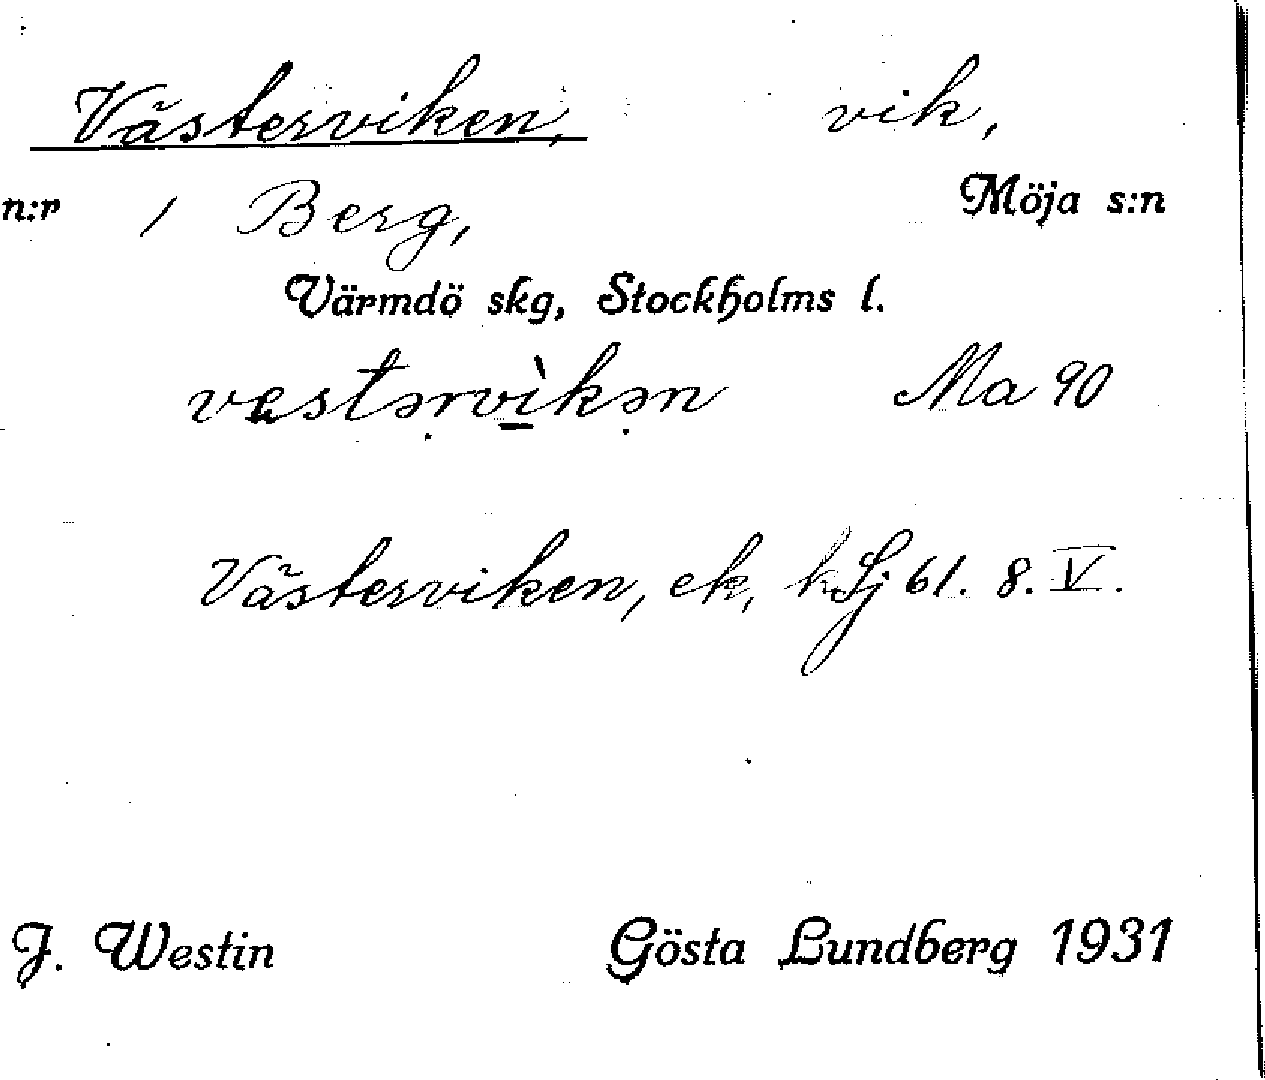 Västerviken, vik,
n:r 1 Berg, Möja s:n
Värmdö skg, Stockholms l.
vestərvìkən Ma 90
Västerviken, ek, kSj 61. 8. V.
J. Westin Gösta Lundberg 1931